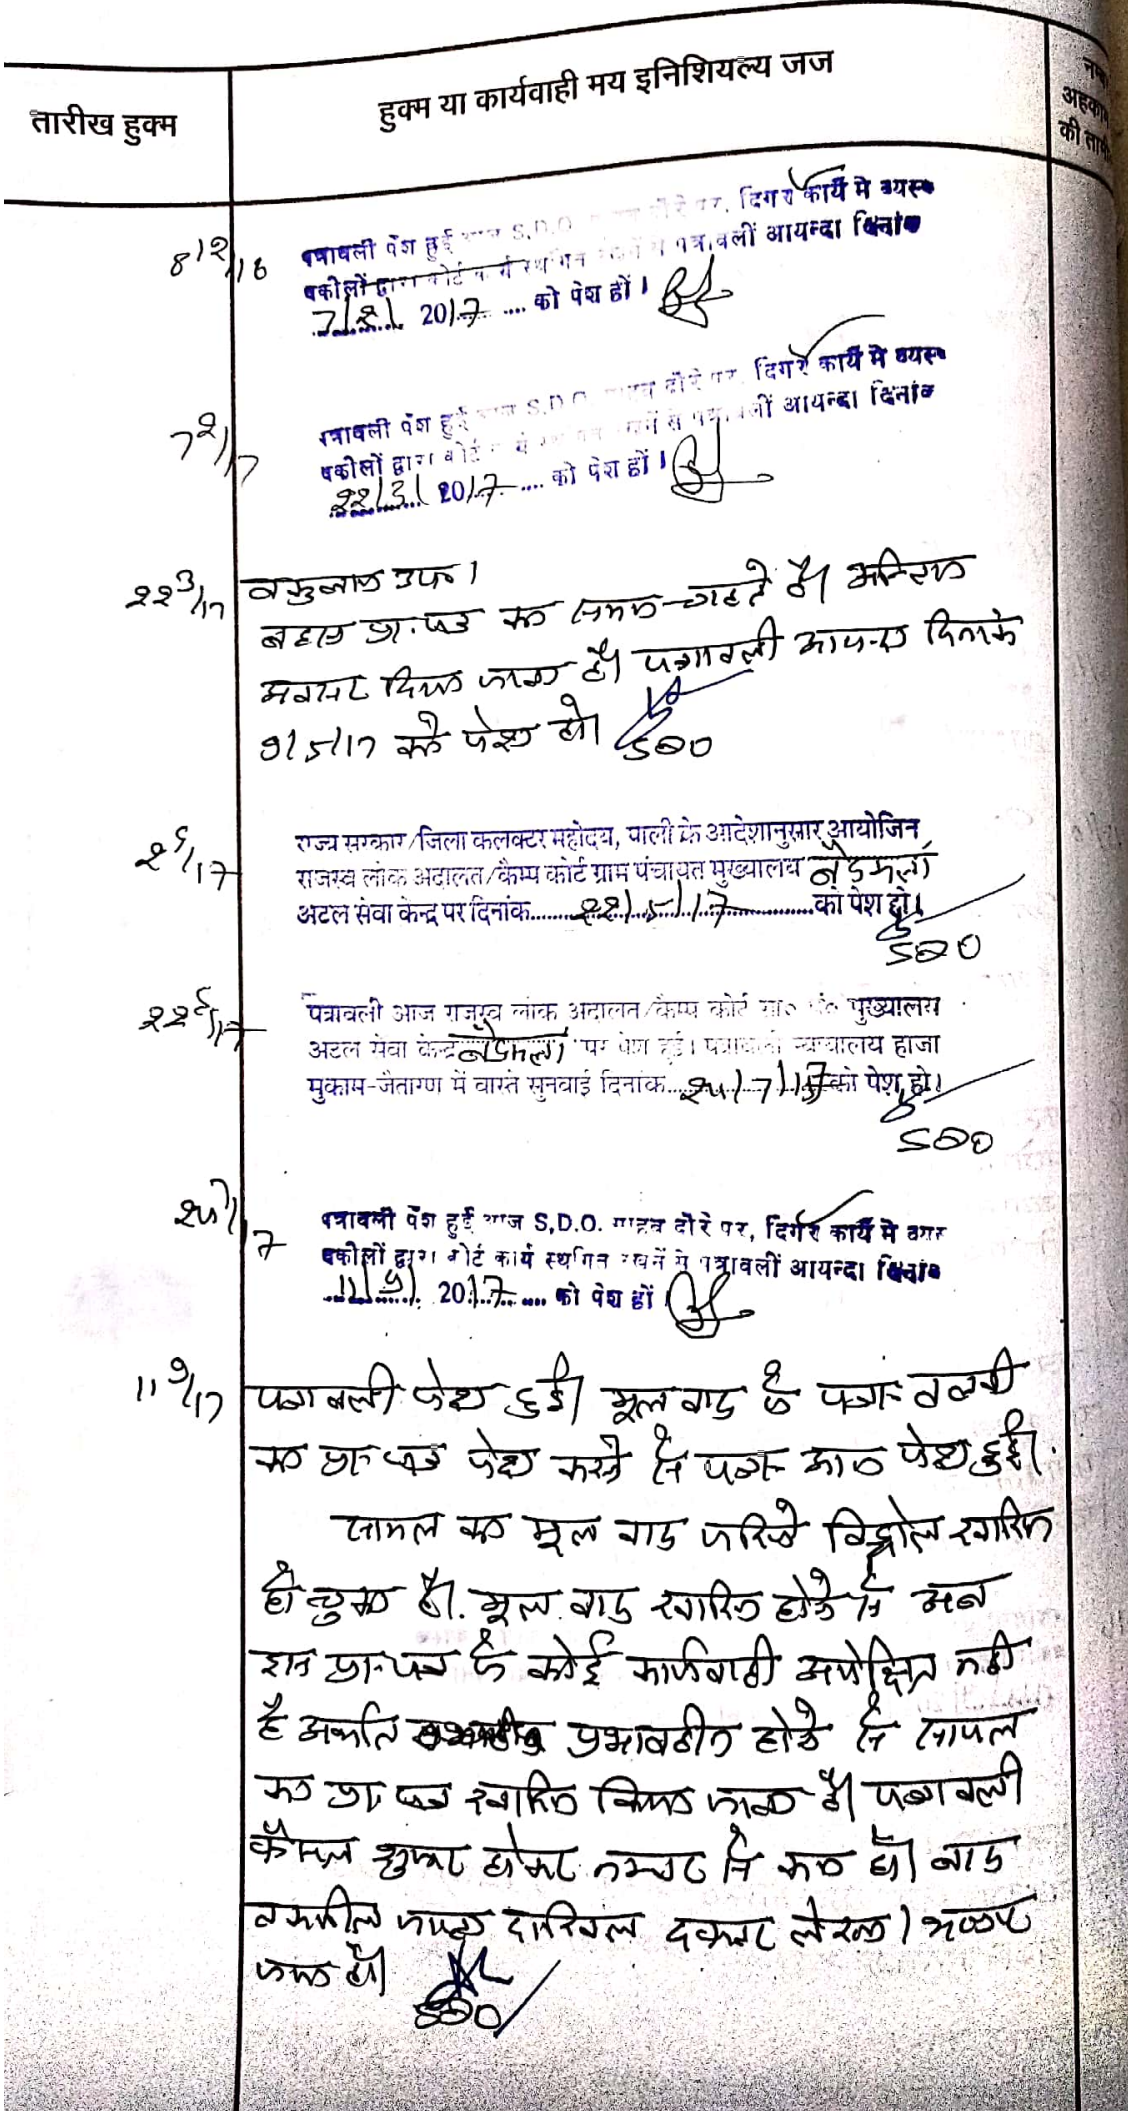 तारीख हुक्म
हुक्म या कार्यवाही मय इनिशियल्य जज
अहकाम
की तामी
8/12/16
पत्रावली पेश हुई आज S.D.O. दौरे पर, दिगर कार्य मे व्यस्त
वकीलों द्वारा कोर्ट कार्य स्थगन रखनें से पत्रावलीं आयन्दा दिनांक
7/2/2017 .... को पेश हों।
7/2/17
पत्रावली पेश हुई आज S.D.O. साहब दौरे पर, दिगर कार्य मे व्यस्त
वकीलों द्वारा कोर्ट रखनें से पत्रावलीं आयन्दा दिनांक
22/3/2017 .... को पेश हों।
22/3/17
वकुलाय उफ।
बहस प्रा.पत्र का समय चाहते है। अन्तिम
अवसर दिया जाता है। पत्रावली आयन्दा दिनांक
9/5/17 को पेश हो।
SDO
राज्य सरकार/जिला कलक्टर महोदय, पाली के आदेशानुसार आयोजित
राजस्व लोक अदालत/कैम्प कोर्ट ग्राम पंचायत मुख्यालय
अटल सेवा केन्द्र पर दिनांक......22/5/17......को पेश हो।
SDO
पत्रावली आज राजस्व लोक अदालत/कैम्प कोर्ट ग्रा० पं० मुख्यालय
अटल सेवा केन्द्र पर पेश हुई। पत्रावली न्यायालय हाजा
मुकाम-जैतारण में वास्ते सुनवाई दिनांक....../7/17 को पेश हो।
SDO
पत्रावली पेश हुई आज S.D.O. साहब दौरे पर, दिगर कार्य मे व्यस्त
वकीलों द्वारा कोर्ट कार्य स्थगित रखनें से पत्रावलीं आयन्दा दिनांक
11/9/2017 .... को पेश हों।
11/9/17
पत्रावली पेश हुई। मूल वाद के पत्रा. तलबी
का प्रा. पत्र पेश करने से पत्रा. आज पेश हुई।
सायल का मूल वाद जरिये विड्रोल खारिज
हो चुका है। मूल वाद खारिज होने से अब
इस प्रा. पत्र में कोई कार्यवाही अपेक्षित नही
है प्रभावहीन होने से सायल
का प्रा. पत्र खारिज किया जाता है। पत्रावली
फैसल शुमार होकर नम्बर से कम हो। बाद
तकमील दाखिल दफ्तर
SDO